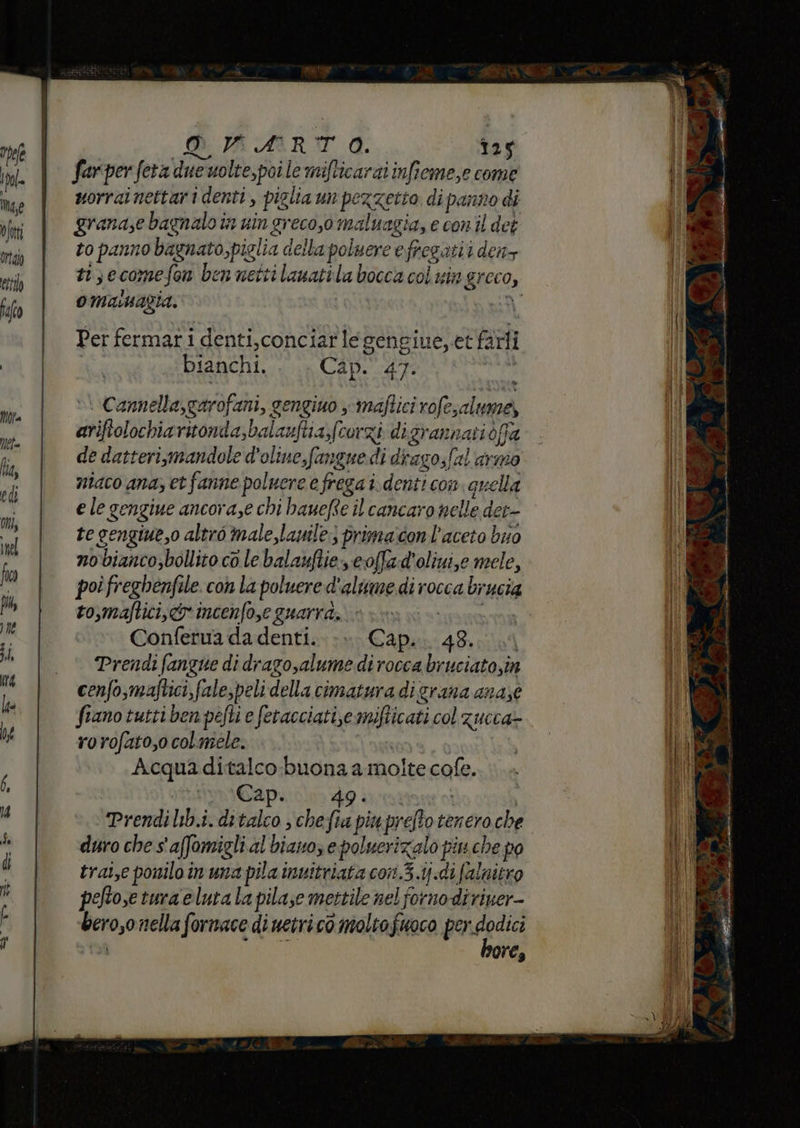 QVARTO. 125
far per seta due uolte, poi le misticarai insieme, e come
uorrai nettar i denti, piglia un pezzetto di panno di
grana, e bagnalo in uin greco, o maluagia, e con il det
to panno bagnato, piglia della poluere e fregati i den-
ti; e come son ben netti lauati la bocca col uin greco,
o maluagia.
Per fermar i denti, conciar le gengiue, et farli
bianchi. Cap. 47.
Cannella, garofani, gengiuo, mastici rose, alume,
aristolochia ritonda, balaustia, scorzi di grannati ossa
de datteri, mandole d'oliue, sangue di drago, sal armo
niaco ana, et fanne poluere e frega i denti con quella
e le gengiue ancora, e chi hauesse il cancaro nelle det-
te gengiue, o altro male, lauile; prima con l'aceto buo
no bianco, bollito cō le balaustie, e ossa d'oliui, e mele,
poi freghensile con la poluere d'alume di rocca brucia
to, mastici, & incenso, e guarrà.
Conserua da denti. Cap. 48.
Prendi sangue di drago, alume di rocca bruciato, in
censo, mastici, sale, peli della cimatura di grana ana, e
siano tutti ben pesti e setacciati, e misticati col zucca-
ro rosato, o col mele.
Acqua di talco buona a molte cose.
Cap. 49.
Prendi lib.i. di talco, che sia piu presto tenero che
duro che s'assomigli al biauo, e poluerizalo piu che po
trai, e ponilo in una pila inuitriata con.℥.ij.di salnitro
pesto, e tura e luta la pila, e mettile nel forno di riuer-
bero, o nella fornace di uetri cō molto fuoco per dodici
hore,